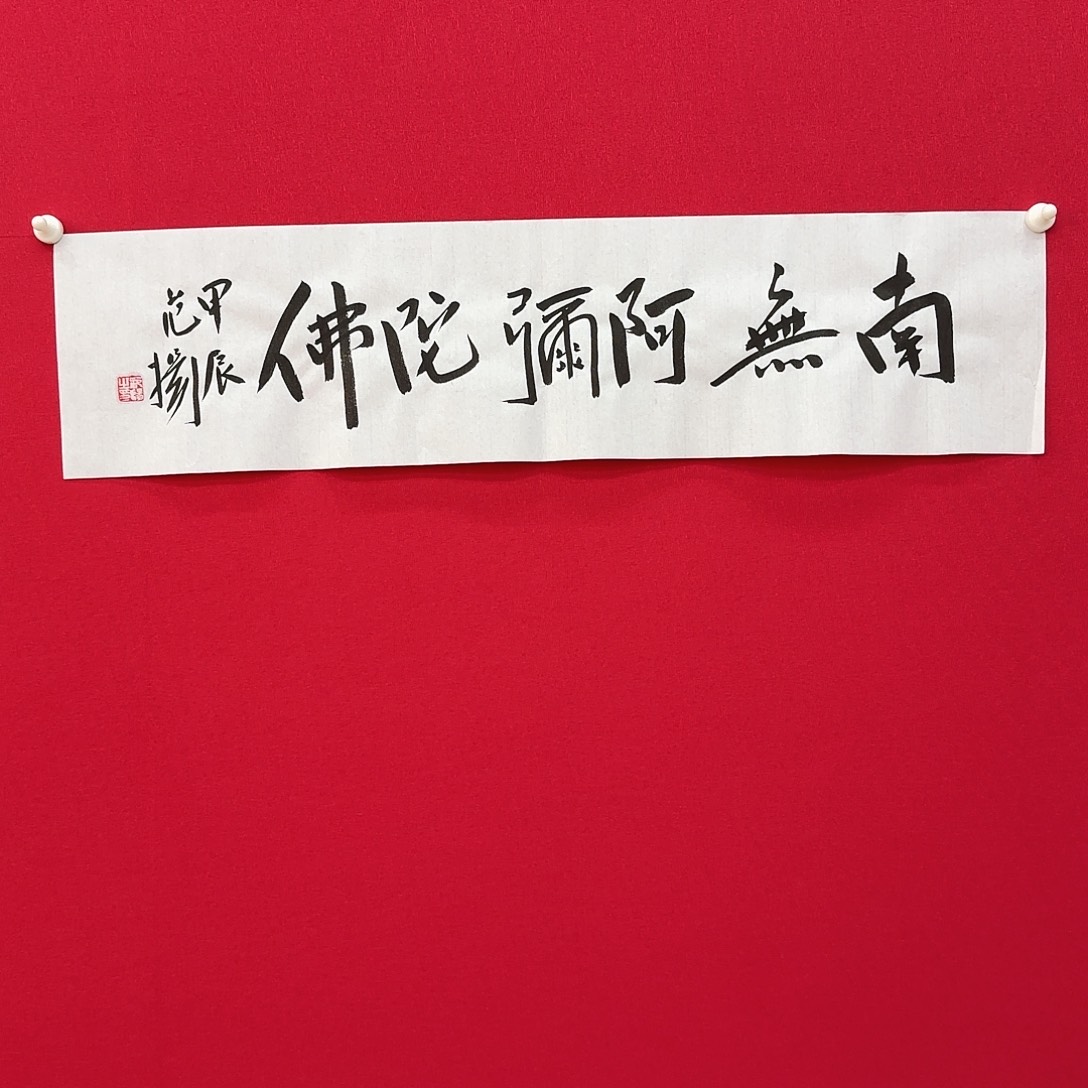 南無阿彌陀佛
甲辰
范揚